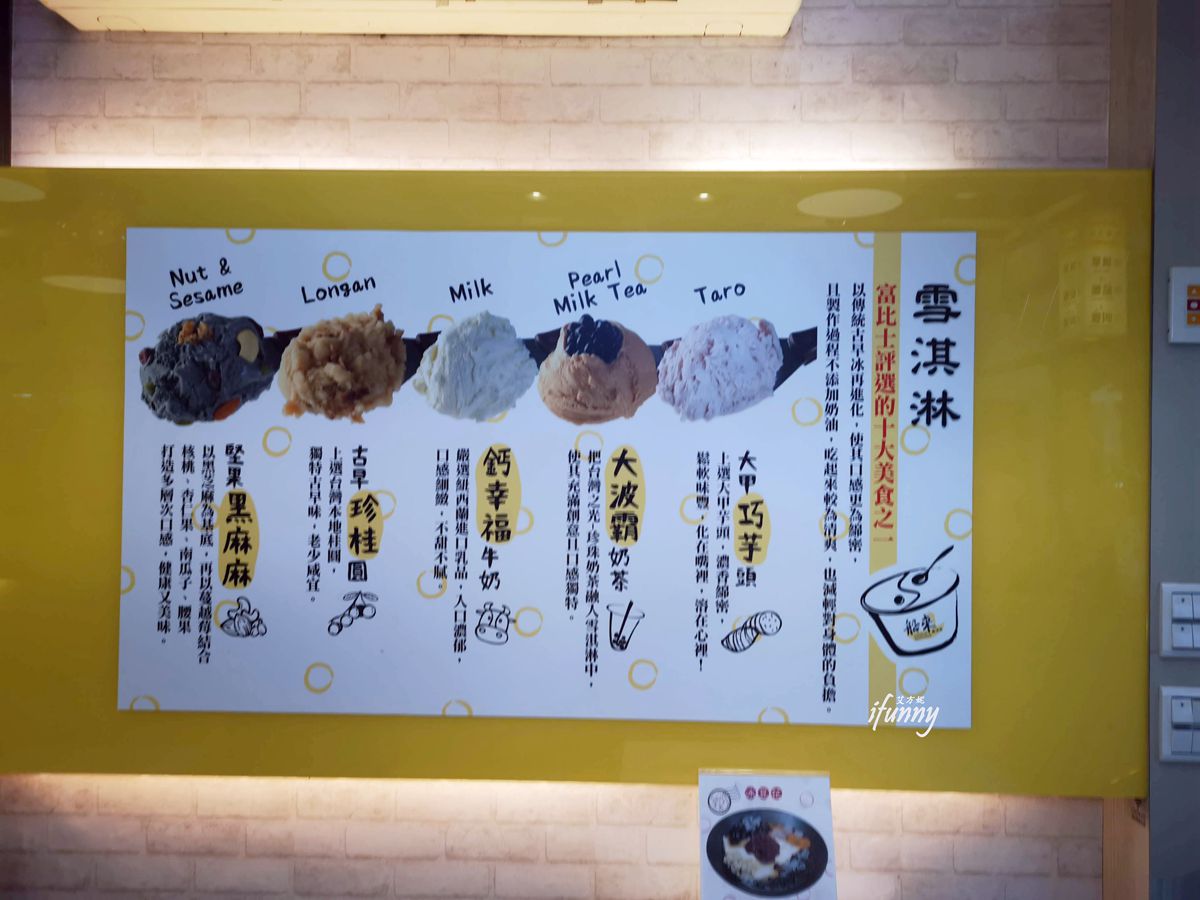 雪淇淋
富比士評選的十大美食之一
以傳統古早冰再進化，使其口感更為綿密，
且製作過程不添加奶油，吃起來較為清爽，也減輕對身體的負擔。
Taro
大甲巧芋頭
上選大甲芋頭，濃香綿密，
鬆軟味豐，化在嘴裡，溶在心裡！
Pearl
Milk Tea
大波霸奶茶
把台灣之光-珍珠奶茶融入雪淇淋中，
使其充滿創意且口感獨特。
Milk
鈣幸福牛奶
嚴選紐西蘭進口乳品，入口濃郁，
口感細緻，不甜不膩。
Longan
古早珍桂圓
上選台灣本地桂圓，
獨特古早味，老少咸宜。
Nut &
Sesame
堅果黑麻麻
以黑芝麻為基底，再以蔓越莓結合
核桃、杏仁果、南瓜子、腰果
打造多層次口感，健康又美味。
艾方妮
ifunny